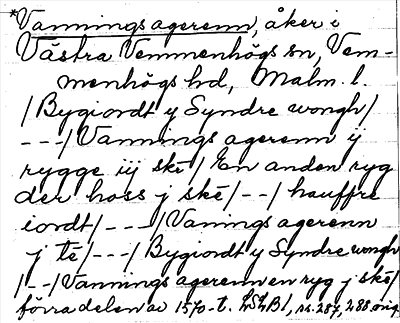 *Vanningsagerenn, åker i
Västra Vemmenhögs sn, Vem-
menhögs hd, Malm. l.
/Bygiordt y Syndre wongh/
---/Vannings agerenn ij
rygge iij ske/ En anden ryg
der hoss j ské/--/hauffre
iordt/---/Vanings agerenn
j té/---/Bygiordt y Syndre wongh
/--/Vannings agerenn en ryg j ské/
förra delen av 1570-t. , s. 287, 288 orig.